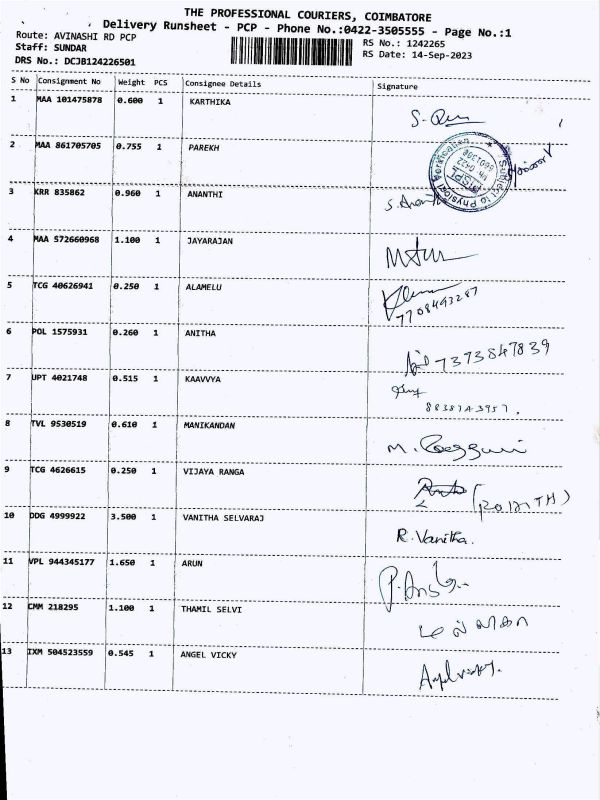 THE PROFESSIONAL COURIERS, COIMBATORE
Delivery Runsheet - PCP - Phone No.:0422-3505555 - Page No.:1
Route: AVINASHI RD PCP
Staff: SUNDAR
DRS No.: DCJB124226501
RS No.: 1242265
RS Date: 14-Sep-2023
S No Consignment No Weight PCS Consignee Details Signature
1 MAA 101475878 0.600 1 KARTHIKA
2 MAA 861705705 0.755 1 PAREKH
Subject to Physical Verification
3 KRR 835862 0.960 1 ANANTHI
4 MAA 572660968 1.100 1 JAYARAJAN
5 TCG 40626941 0.250 1 ALAMELU 7708493287
6 POL 1575931 0.260 1 ANITHA 7373847839
7 UPT 4021748 0.515 1 KAAVVYA
8 TVL 9530519 0.610 1 MANIKANDAN
9 TCG 4626615 0.250 1 VIJAYA RANGA
10 DDG 4999922 3.500 1 VANITHA SELVARAJ R. Vanitha.
11 VPL 944345177 1.650 1 ARUN
12 CMM 218295 1.100 1 THAMIL SELVI
13 IXM 504523559 0.545 1 ANGEL VICKY